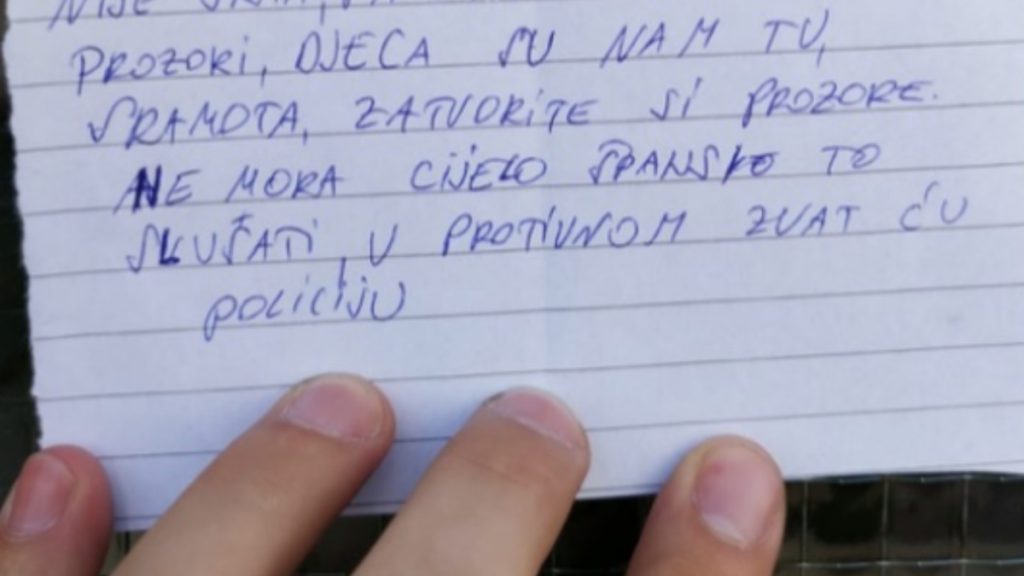 NIJE
PROZORI, DJECA SU NAM TU,
SRAMOTA, ZATVORITE SI PROZORE.
NE MORA CIJELO ŠPANSKO TO
SLUŠATI, U PROTIVNOM ZVAT ĆU
POLICIJU